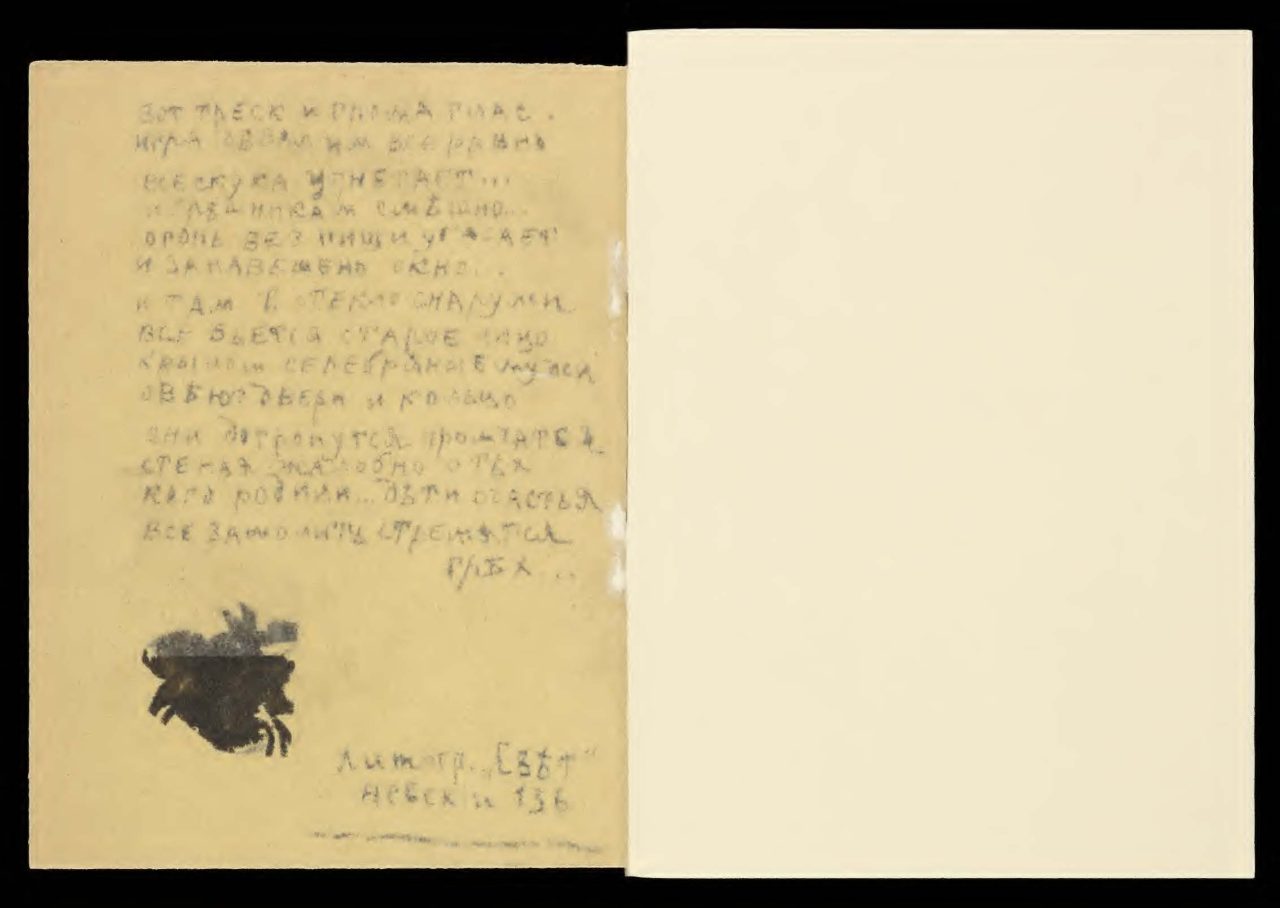 вот треск и грома глас.
игра              им все равно
все скука угнетает...
и грешникам смѣшно...
огонь без пищи угасает
и занавешено окно...
и там в стекло снаружи
все бьется старое лицо
крылом серебряные мужи
овѣют двери и кольцо
они дотронутся промчатся
стеная жалобно о тѣх
кого родили... дѣти счастья
все замолить стремятся
грѣх...
литогр. „Свѣт“
Невский 136